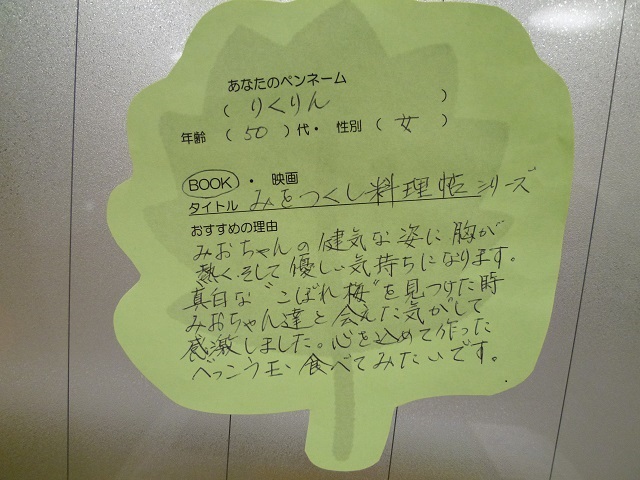 あなたのペンネーム
( りくりん )
年齢 ( 50 ) 代・ 性別 ( 女 )
BOOK ・ 映画
タイトル みをつくし料理帖シリーズ
おすすめの理由
みおちゃんの健気な姿に胸が
熱く、そして優しい気持ちになります。
真白な"こぼれ梅"を見つけた時
みおちゃん達と会えた気がして
感激しました。心を込めて作った
べっこう玉、食べてみたいです。